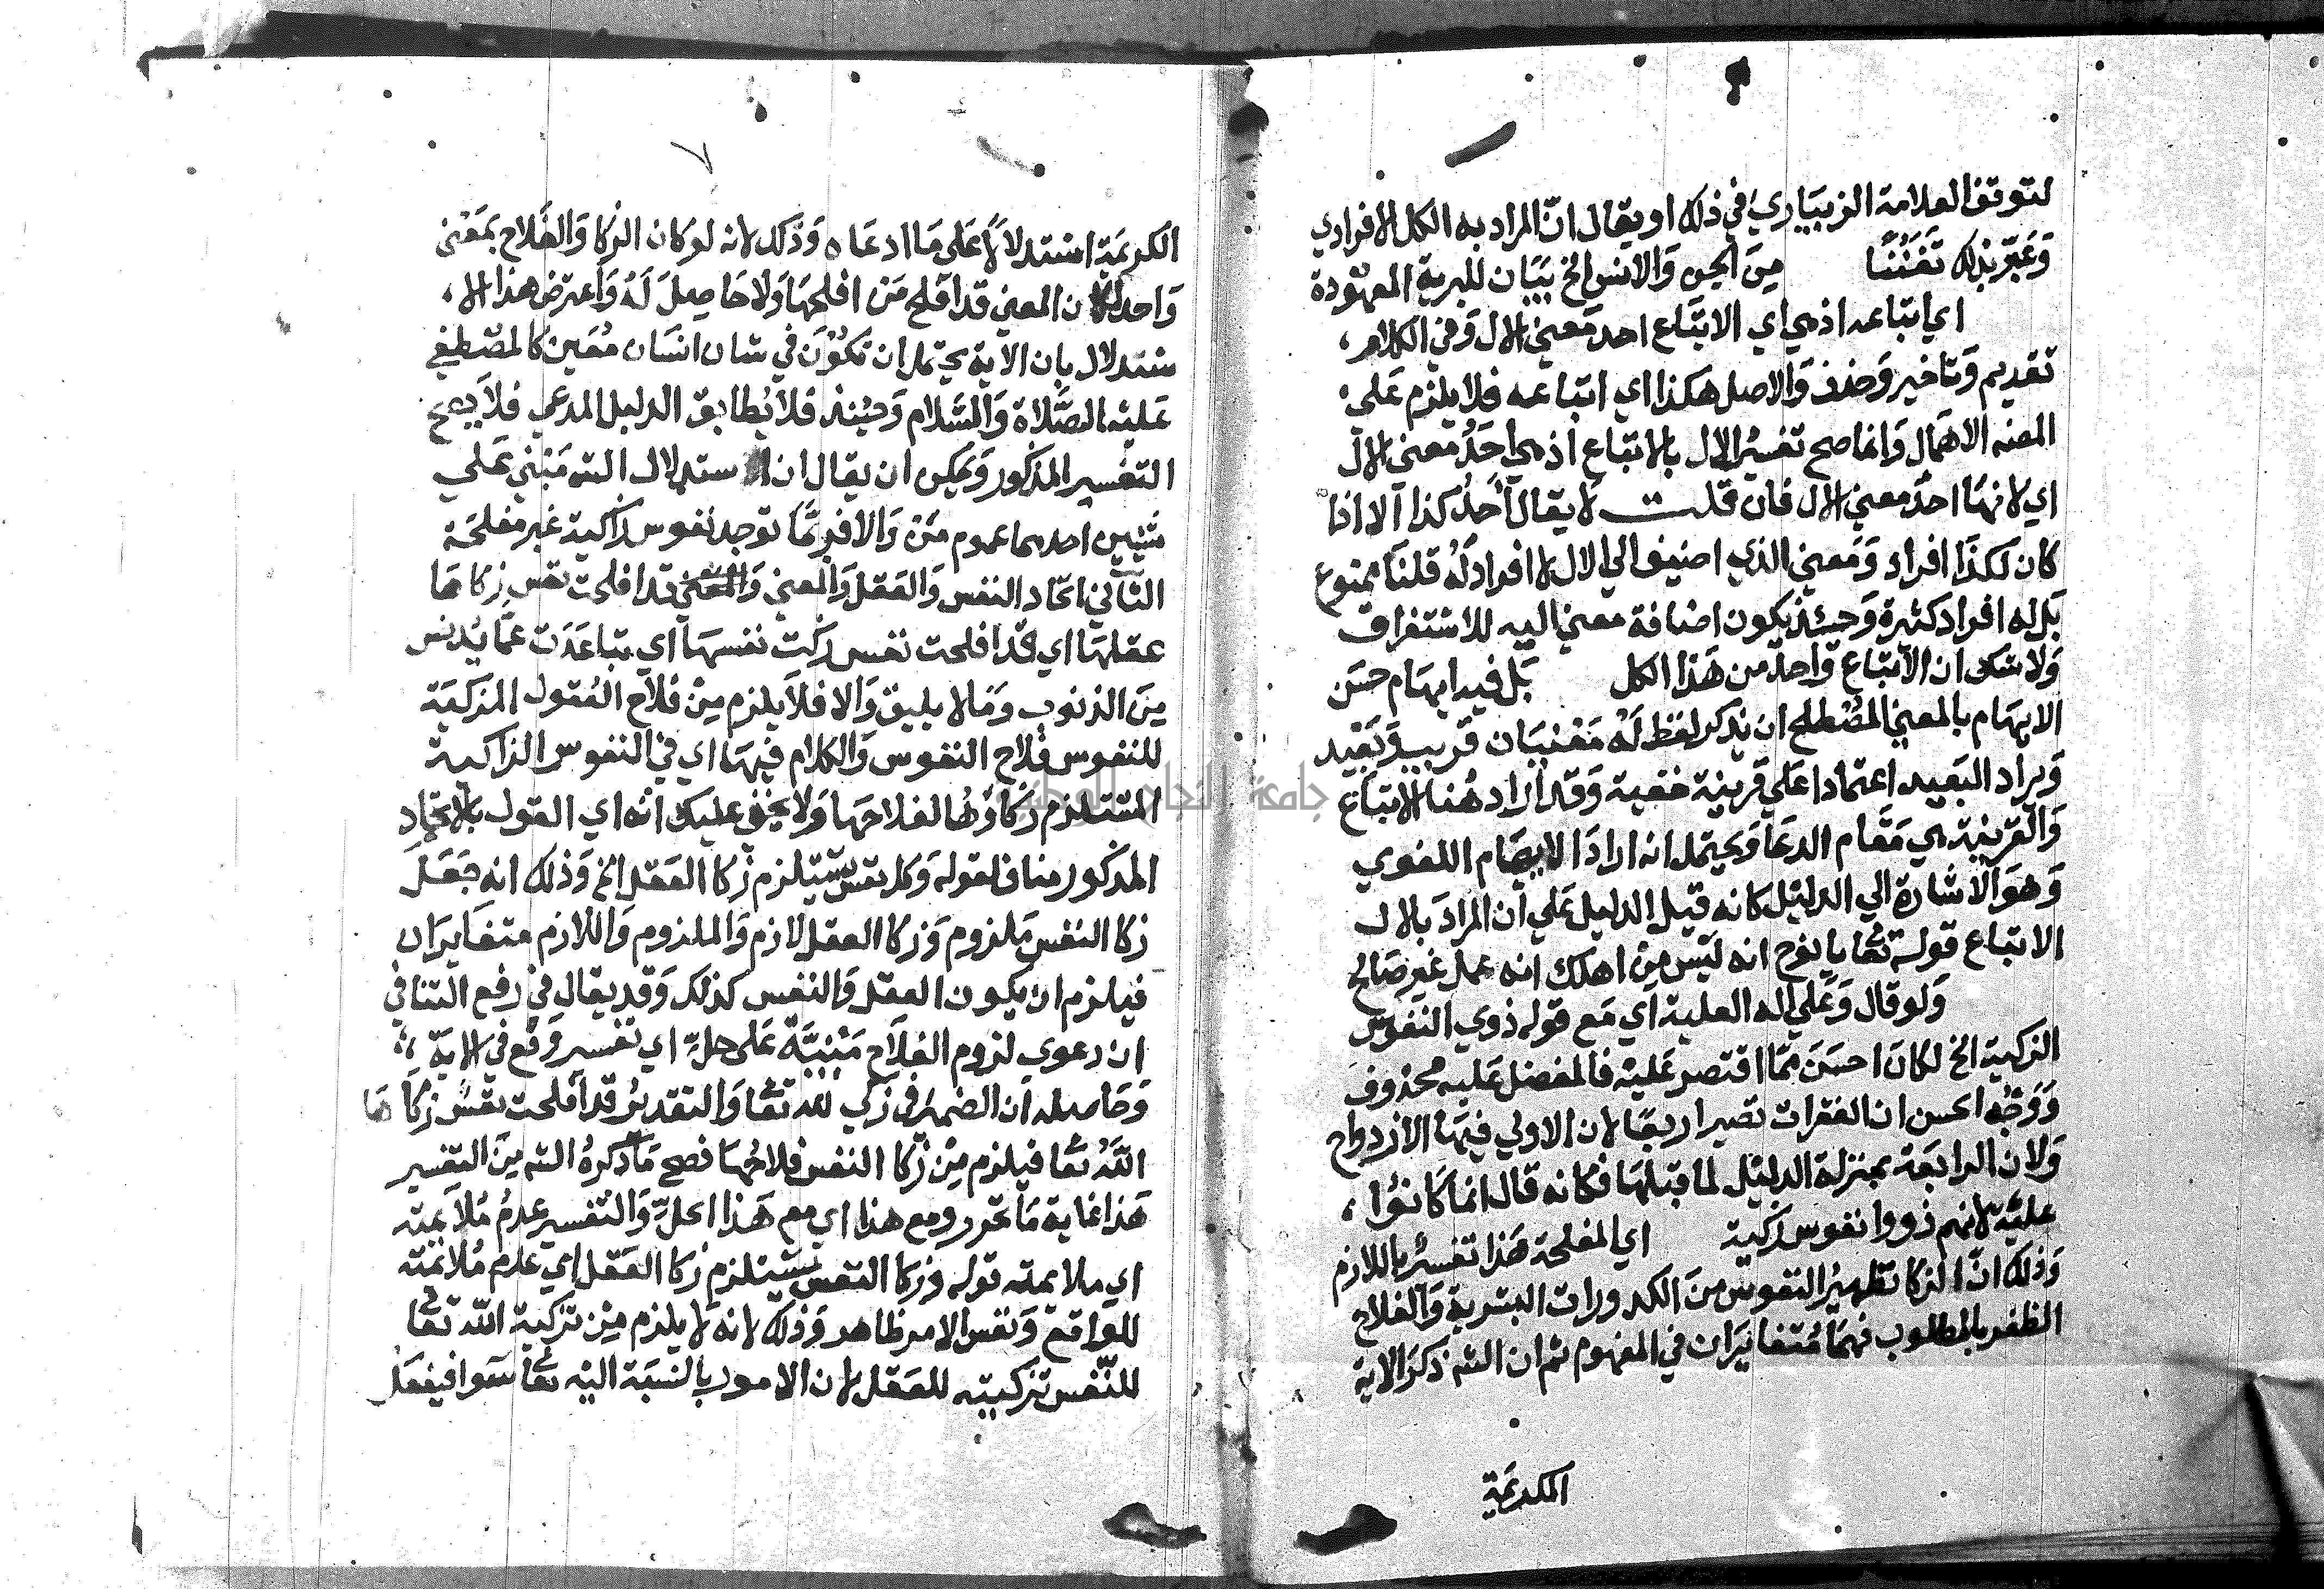 لتوقف العلامة الزيباري في ذلك او يقال انّ المراد به الكل الافرادي
وَعَبّر بذلك تَفَنُنًا من الجن وَالانس الخ بيَان للبرية المعهودة
اي اتباعه اذ هي اي الاتباع احد مَعني الال وَفي الكلام
تقديم وَتاخير وَحذف وَالاصل هكذا اي اتباعه فلا يلزم عَلي
المصنه الاهمال وَانما صح تفسيرُ الال بالاتباع اذ هي احَدُ معني الال
اي لانهَا احدُ معني الال فان قلت لا يقال احَدُ كذا الا اذا
كان لكذا افراد وَمَعني الذي اضيف الي الال لا افراد لهُ قلنا ممنوع
بَل له افراد كثيرة وَحينئذ يكون اضافة معني اليه للاستغراق
وَلا شك ان الاتباع وَاحد من هَذا الكل بَل فيه ايهَام حسَن
الايهَام بالمعني المصْطلح ان يذكر لفظ لَهُ مَعْنيَان قَريب وَبَعيد
وَيراد البَعيد اعتمادا عَلي قرينة خفية وَقد اراد هُنا الاتباع
وَالقرينة هي مَقَام الدعَا وَيحتمل انه ارادَ الايهَام اللغوي
وَهوَ الاشارة الي الدليْل كانه قيل الدليل عَلي ان المرادَ بالال
الاتباع قولهُ تعَا يا نوح انه ليْس مِنْ اهلك انه عمل غير صَالح
وَلو قال وَعَلي اله العلية اي مَع قوله ذوي النفوس
الزكية الخ لكانَ احسَنَ ممّا اقتصر عَليْه فالمفضل عَليه محذوف
وَوَجْه الحسن ان الفقرات تصير اربعًا لان الاولي فيهَا الازدواج
وَلان الرابعَة بمنزلة الدليْل لما قبلهَا فكانه قال انما كانوُا
عليّة لانهم ذووا نفوس زكية اي المفلحة هَذا تفسيرٌ باللازم
وَذلك انّ الزكا تطهيرُ النفوس منَ الكدورات البشرية وَالفلاح
الظفر بالمطلوب فهمَا مُتغايرَان في المفهوم ثم ان الشه ذكرَ الاية
الكريمَة
٧
الكريمَة استدلالاً عَلى مَا ادعَاه وَذَلك لانه لو كان الزكا وَالفَلاح بمَعْني
وَاحد لكان المعني قد افلح مَن افلحهَا وَلا حَاصِلَ لَهُ وَاعترض هذا الا
ستدلال بان الاية يحتمل ان تكوْن في شان انسَان مُعَين كالمصْطفي
عَليْه الصَّلاة وَالسَّلام وَحيْنئذ فلا يُطابق الدليل المدعي فلاَ يصح
التفسير المذكور وَيمكن ان يقال ان الاستدلال الشه مَبْني عَلي
شيئين احدهما عموم مَنْ وَالا فربمَّا توجد نفوس زاكية غير مفلحَة
الثاني اتحاد النفس وَالعَقل وَالمعني قد افلحت نفس زكاهَا
عقلهَا اي قد افلحت نفس زكت نفسهَا اي تباعَدَت عَمّا يُدنس
مِنَ الذنوب وَمَا لا يليق وَالا فلاَ يلزم مِنْ فلاَح العُقول المزكَية
للنفوس فلاح النفوس وَالكلام فيهَا اي في النفوس الزاكيَة
المستلزم زَكاؤهَا لفلاحهَا وَلا يخفي عليك انه اي القول بالاتحاد
المذكور مناف لقوله وَكل نفس يستلزم زكا العَقل الخ وَذلك انه جَعَلَ
زكا النفس مَلزوم وَزكا العقل لازم وَالملزوم وَاللازم متغايرَان
فيلزم ان يكون العقل وَالنفس كذلك وَقد يقال في رفع التنافي
ان دعوي لزوم الفلاَح مَبْنِيَّة عَلى حلٍ اي تفسير وَقعَ في الايَة
وَحَاصله ان الضميْرَ في زكي لله تعَا وَالتقديرُ قد افلحت نفس زكاها
اللّهُ تعَا فيلزم مِنْ زكا النفس فلاحُهَا فصح مَا ذكرهُ الشه مِنَ التفسير
هَذا غاية مَا تحرر ومع هذا اي مع هَذا الحلّ وَالتفسير عدمُ مُلاَيمته
اي ملايمته قوله وزكا النفس يستلزم زكا العَقل اي عَدم مُلاَيمته
للواقع وَنفس الامر ظاهر وَذلك لانه لاَ يلزم مِنْ تزكية اللّه تعَا
للنّفس تزكيته للعَقل لان الامور بالنسبَة اليْه تعَا سَوا فيفعَل